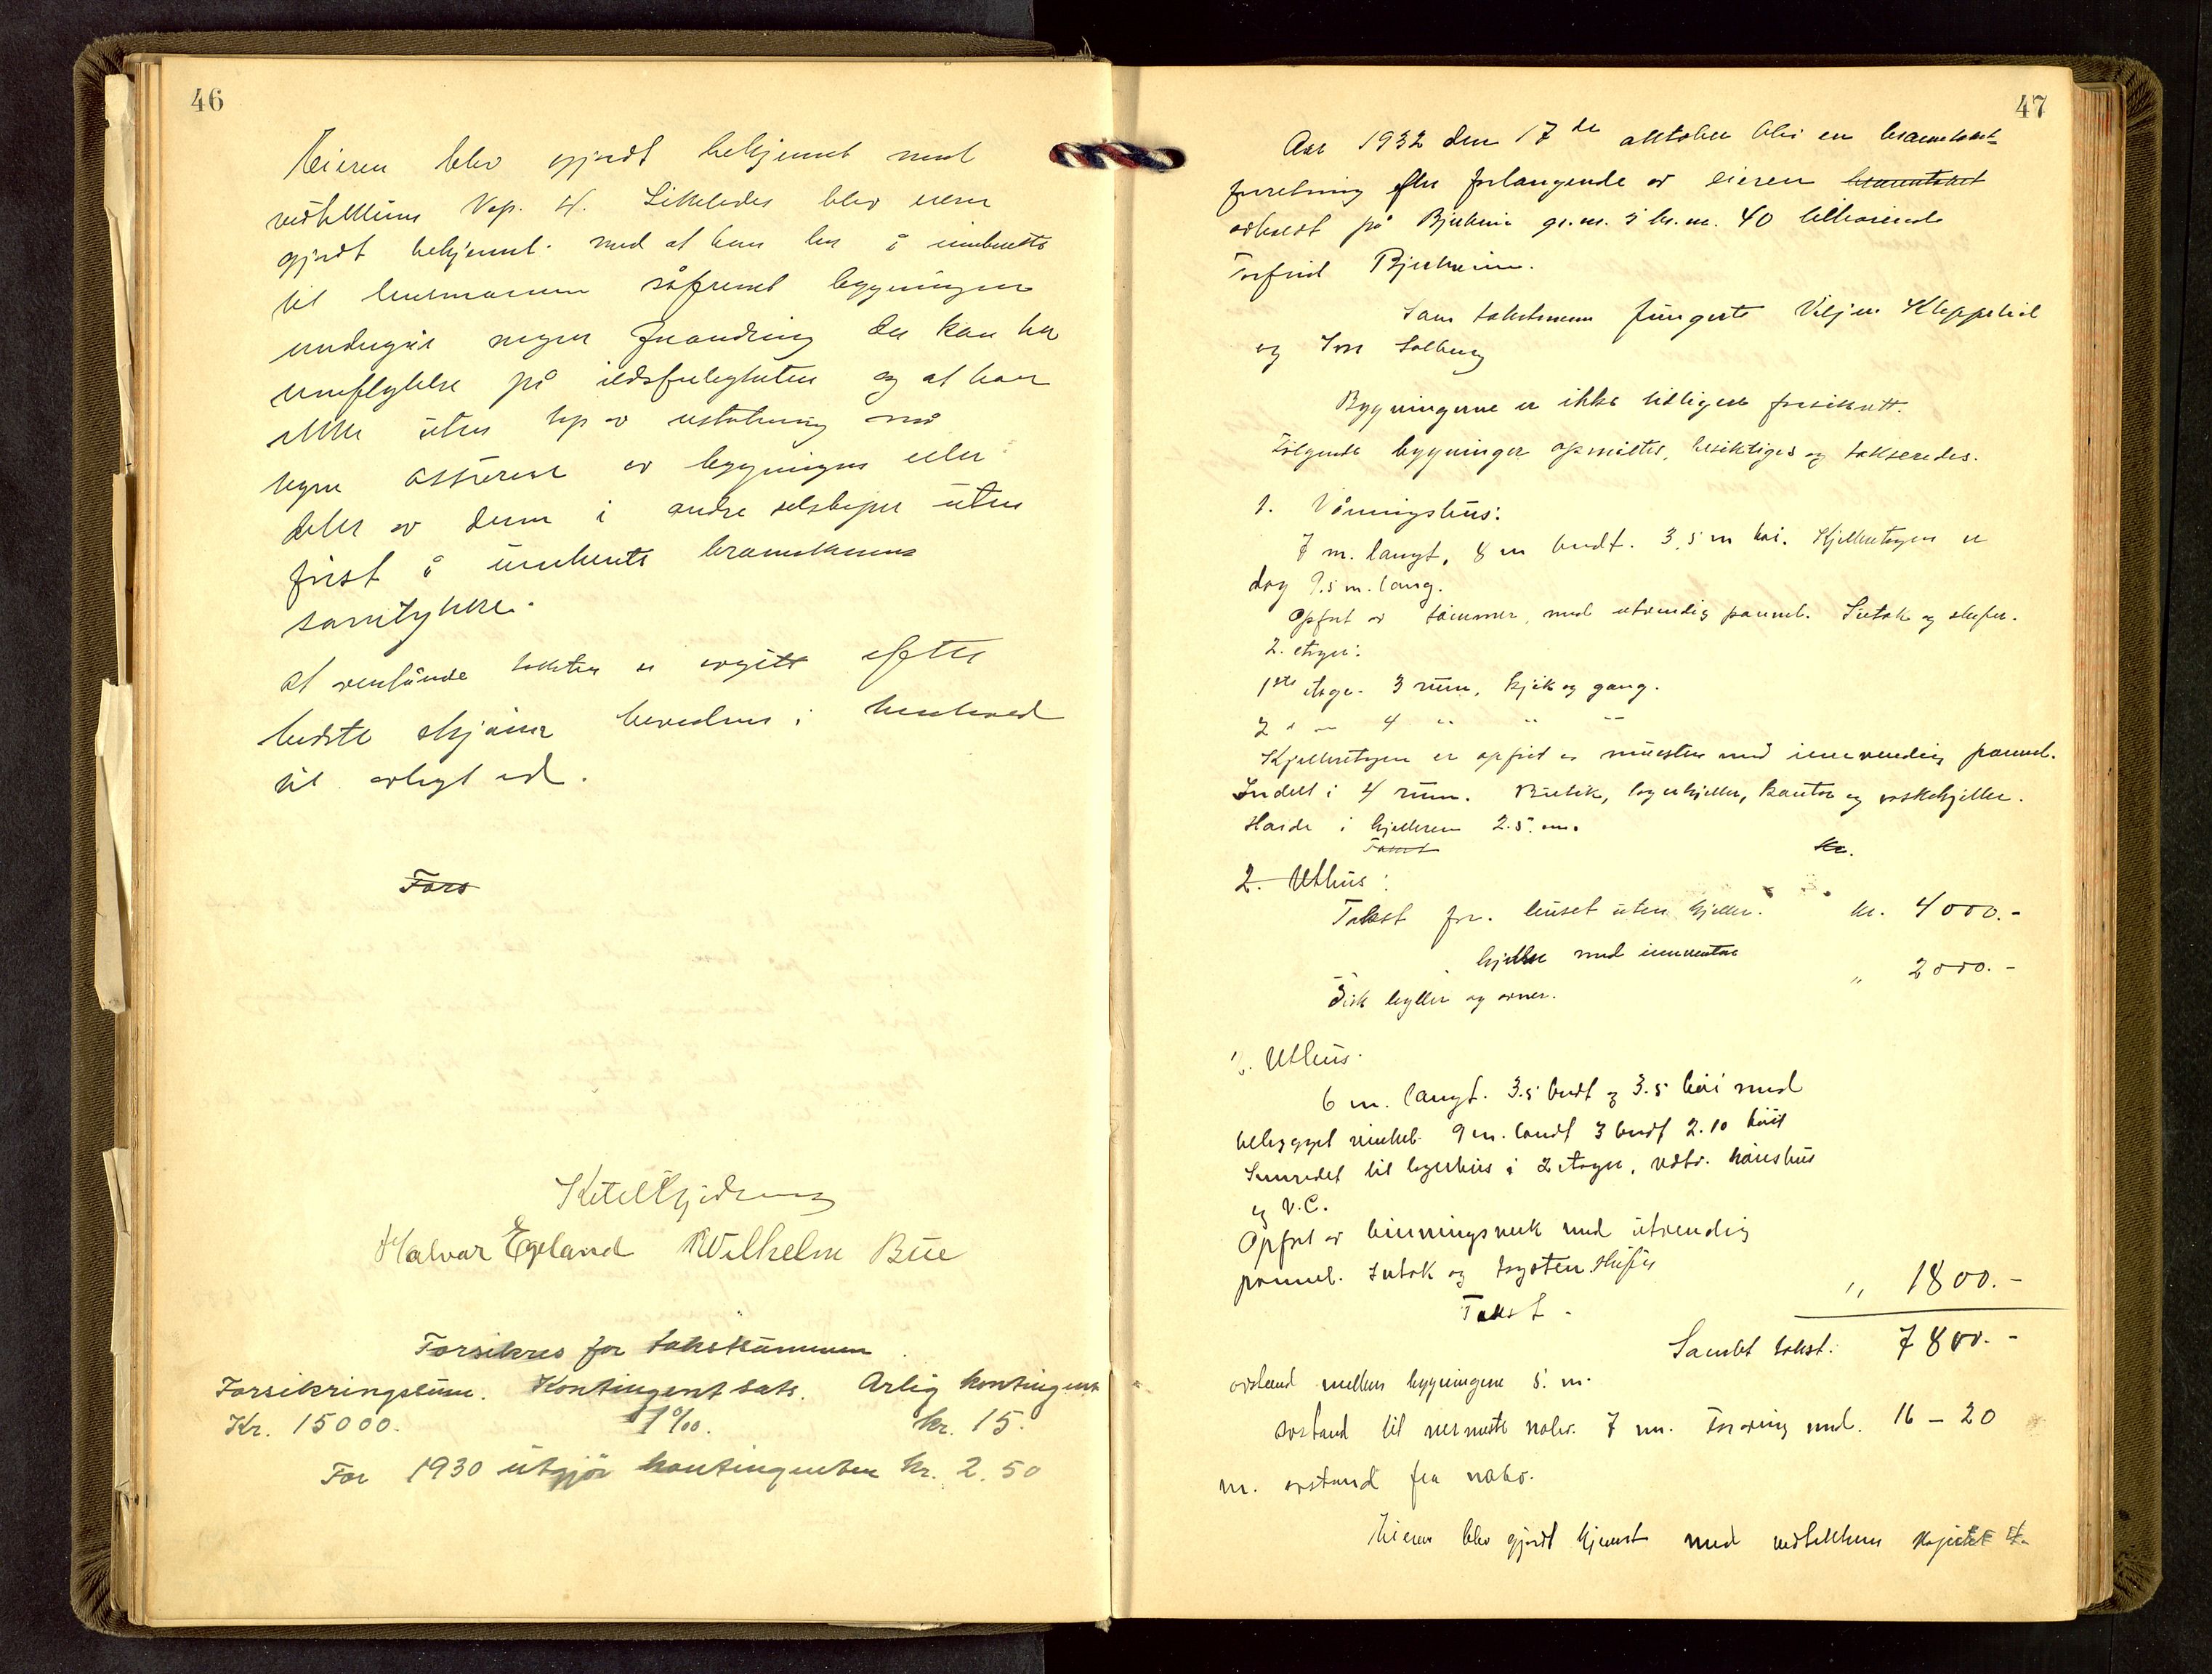 46
Eieren blev gjordt bekjennt med
vedtektens kap. 4. Likeledes blev eieren
gjordt bekjennt med at han har å innberette
til lensmannen såfremt bygningen
undergår nogen forandring der kan ha
innflytelse på ildsfarligheten og at han
ikke uten tap av erstatning må
tegne assuranse av bygningen eller
deler av denne i andre selskaper uten
først å innhente brannkassens
samtykke.
At ovenstående takster er avgitt efter
bedste skjønn bevidnes i henhold
til avlagt ed.
Fors
Halvar Egeland Wilhelm Bue
Forsikres for takstsummen
Forsikringssum. Kontingentsats. Årlig kontingent
Kr. 15000. 1 ‰. kr. 15.
For 1930 utgjør kontingenten kr. 2.50
47
Aar 1932 den 17de oktober blev en branntakst-
forretning efter forlangende av eieren branntakst
avholdt på Bjerheim gr. nr. 5 br. nr. 40 tilhørende
Torfinn Bjerheim.
Som takstmenn fungerte Kleppelid
og Solberg
Bygningerne er ikke tidligere forsikrett.
Følgende bygninger opmåltes, besiktiges og takseredes.
1. Våningshus:
7 m. langt, 8 m bredt. 3,5 m høi. Kjelleretagen er
dog 9.5 m. lang.
Opført av tømmer, med utvendig pannel. Sutak og skifer.
2. etager:
1ste etage. 3 rum, kjøk og gang.
2 " — 4 " " "
Kjelleretagen er opført av mursten med innvendig pannel.
Indelt i 4 rum. Butik, lagerkjeller, kontor og vaskekjeller.
Høide i kjelleren 2.5. m.
Takst kr.
2. Uthus:
Takst for huset uten kjeller. kr. 4000.-
kjeller med inventar
Disk hyller og ovner. " 2000.-
2. Uthus.
6 m. langt. 3.5 bredt og 3.5 høi med
tilbygget vinkel. 9 m. landt 3 bredt 2.10 høit
Innredet til lagerhus i 2 etager, vedbo. hønshus
og V.C.
Opført av binningsverk med utvendig
pannel. Sutak og tagsten skifer
Takst - " 1800.-
Samlet takst. 7800.-
avstand mellem bygningene 5. m.
avstand til nermeste nabo. 7 m. Forøvrig med. 16 - 20
m. avstand fra nabo.
Eieren blev gjordt kjennt med vedtektens kapitel 4.